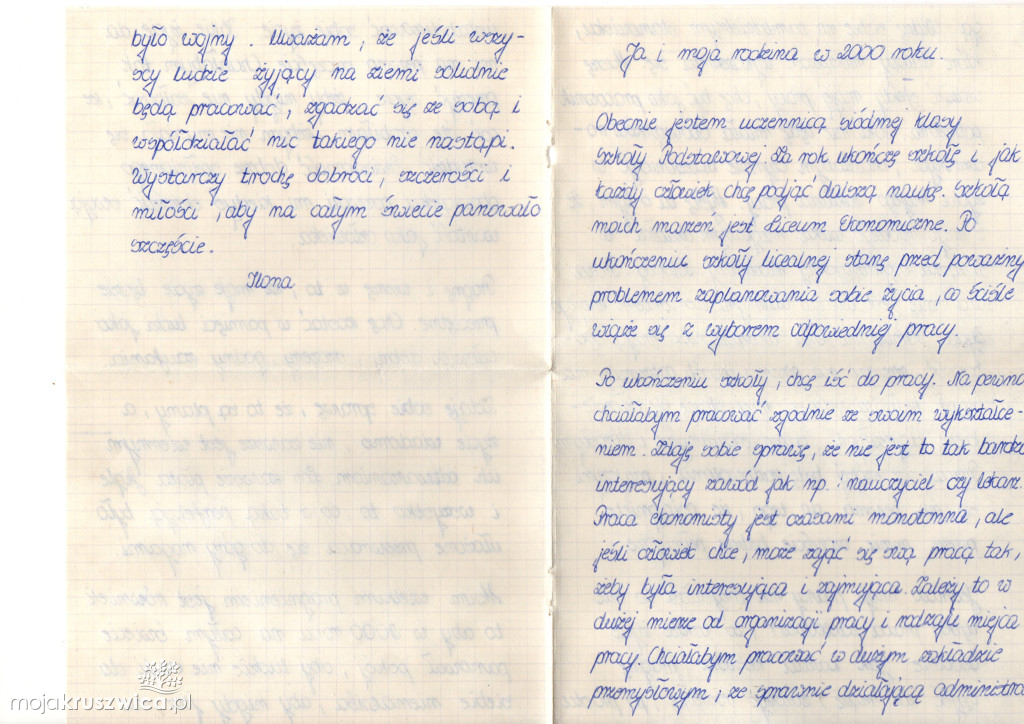 było wojny. Uważam, że jeśli wszy-
scy ludzie żyjący na ziemi solidnie
będą pracować, zgadzać się ze sobą i
współdziałać nic takiego nie nastąpi.
Wystarczy trochę dobroci, szczerości i
miłości, aby na całym świecie panowało
szczęście.
Ilona
Ja i moja rodzina w 2000 roku.
Obecnie jestem uczennicą siódmej klasy
Szkoły Podstawowej. Za rok ukończę szkołę i jak
każdy człowiek chcę podjąć dalszą naukę. Szkołą
moich marzeń jest Liceum Ekonomiczne. Po
ukończeniu szkoły licealnej stanę przed poważnym
problemem zaplanowania sobie życia, co ściśle
wiąże się z wyborem odpowiedniej pracy.
Po ukończeniu szkoły, chcę iść do pracy. Na pewno
chciałabym pracować zgodnie ze swoim wykształce-
niem. Zdaję sobie sprawę, że nie jest to tak bardzo
interesujący zawód jak np.: nauczyciel czy lekarz.
Praca ekonomisty jest czasami monotonna, ale
jeśli człowiek chce, może zająć się swą pracą tak,
żeby była interesująca i zajmująca. Zależy to w
dużej mierze od organizacji pracy i rodzaju miejsca
pracy. Chciałabym pracować w dużym zakładzie
przemysłowym, ze sprawnie działającą administra
mojakruszwica.pl